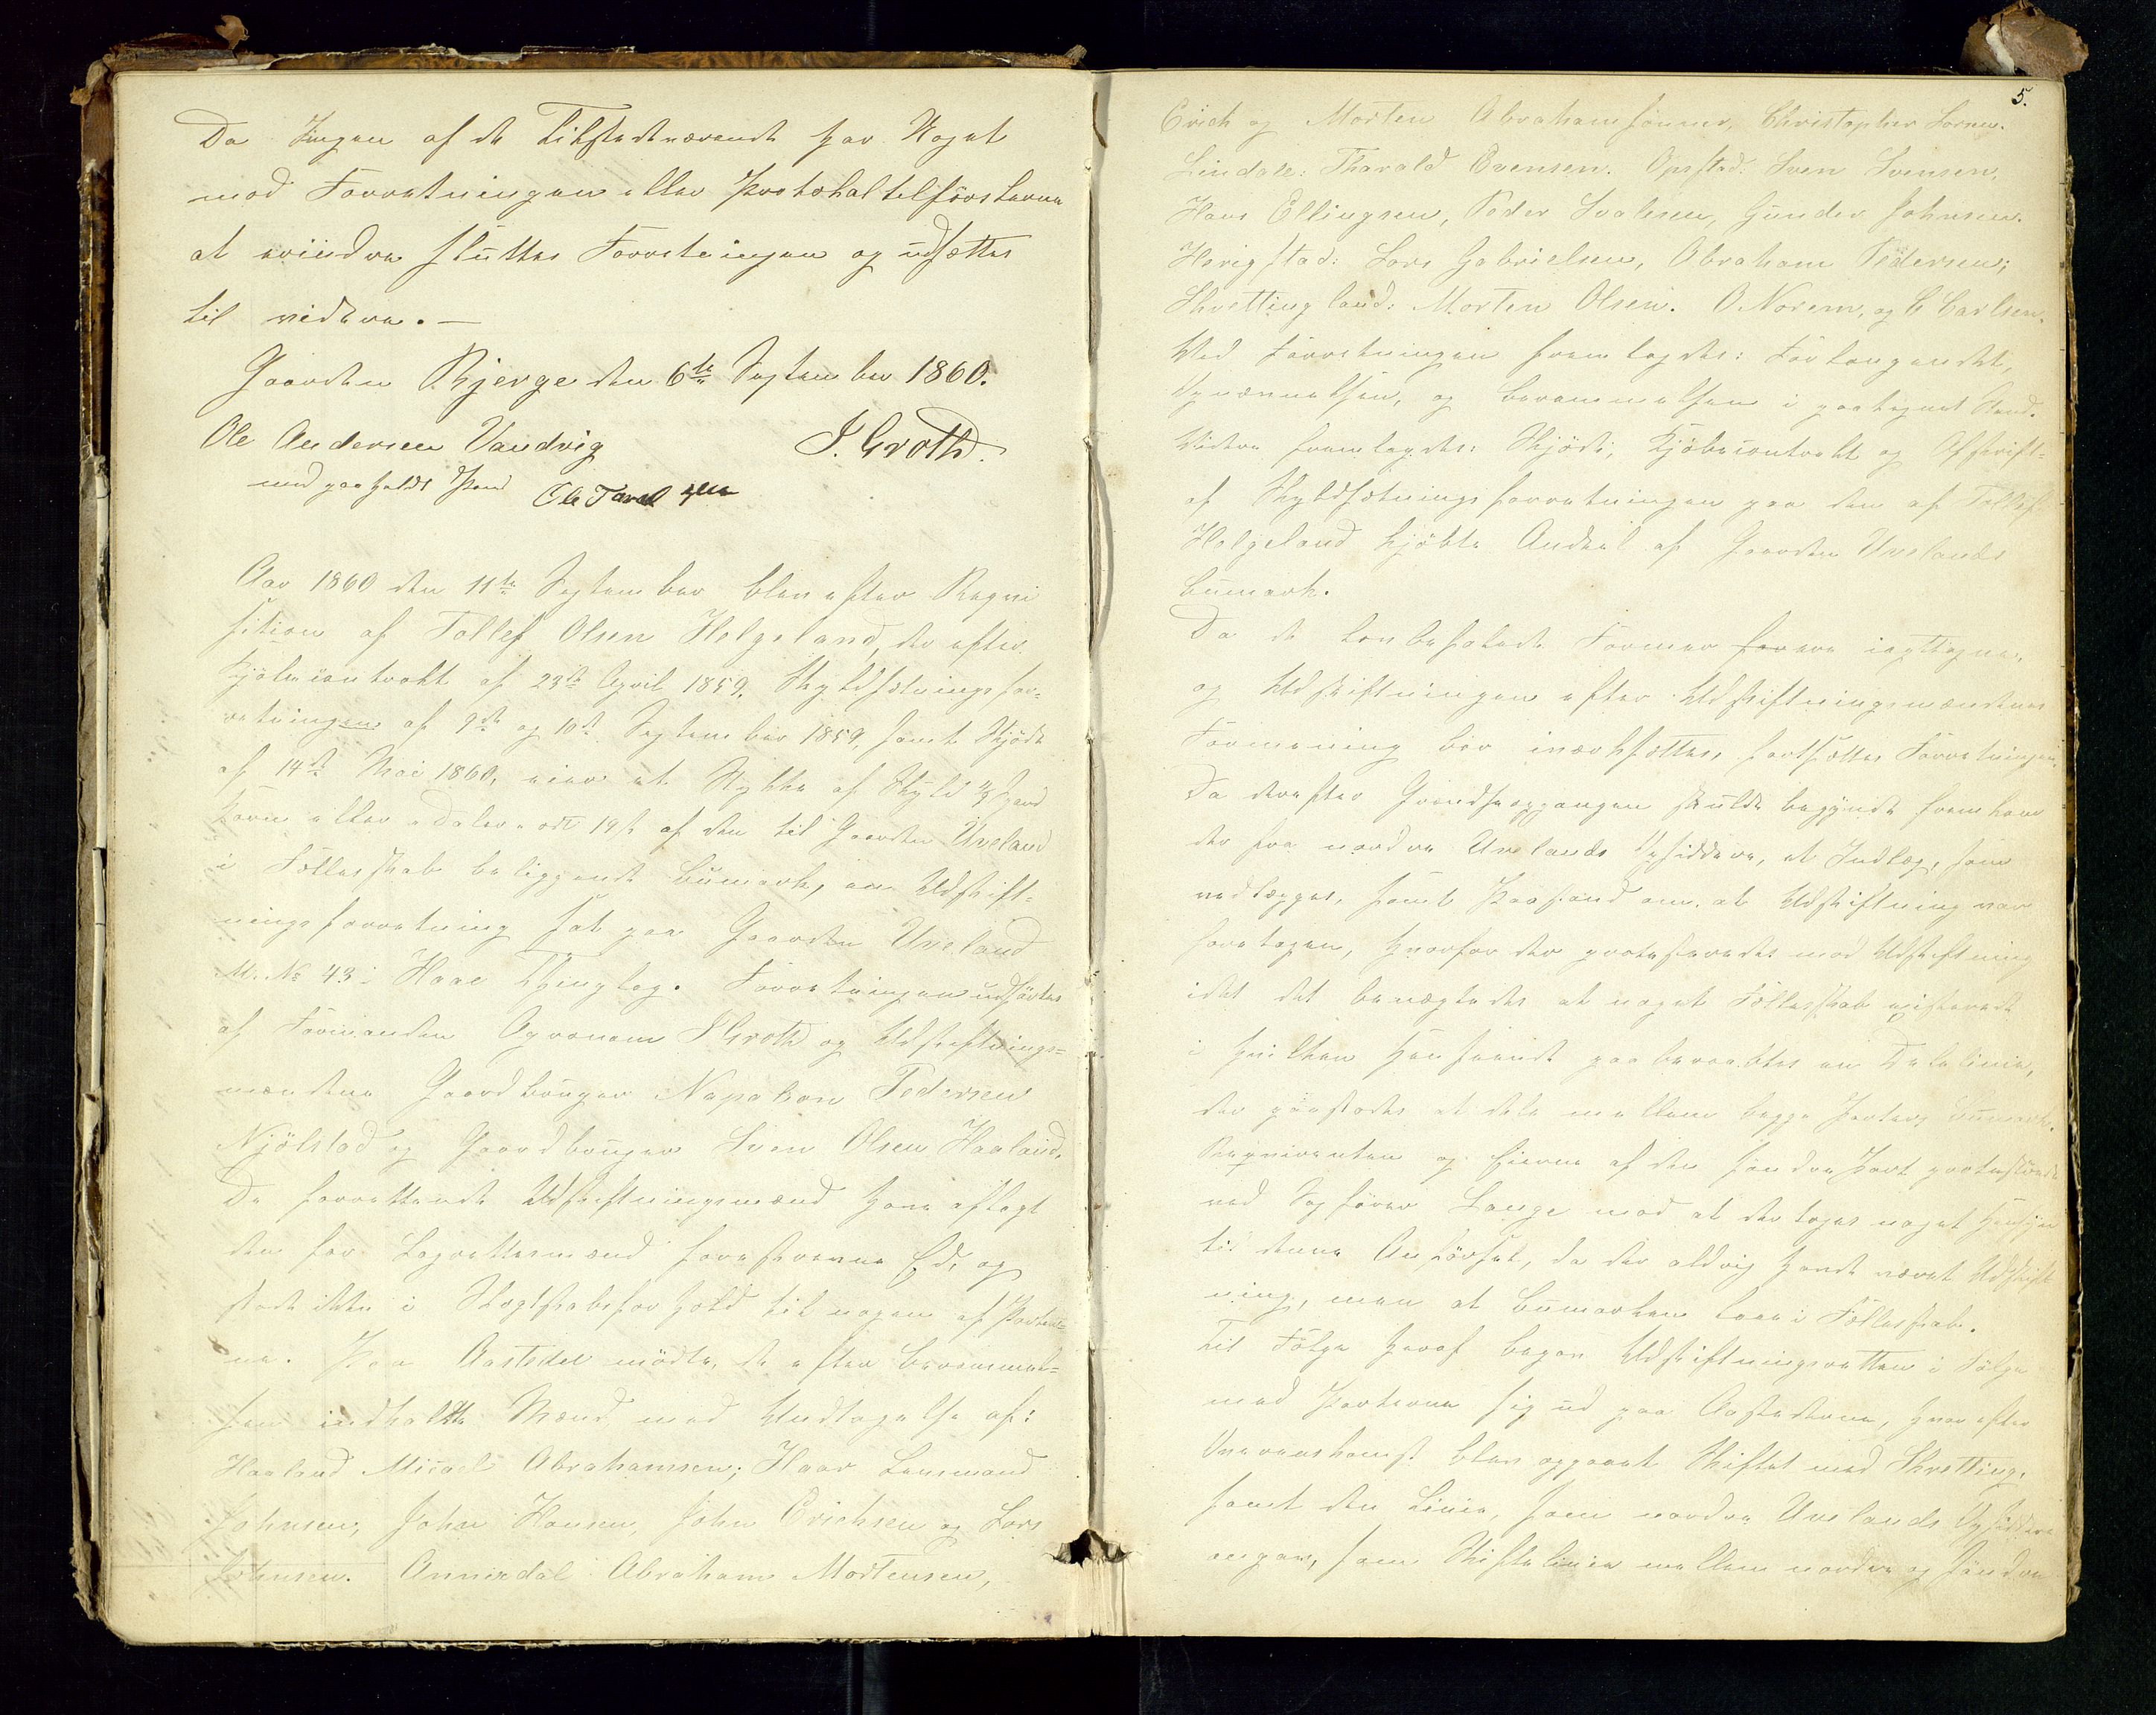 Da Ingen af de Tilstedeværende har Noget
mod Forretningen eller Protokoltilførslerne
at erindre sluttes Forretningen og udsættes
til videre. —
Gaarden Bjerge den 6te September 1860.
Ole Andersen Vandvig J. Groth.
med paaholdt Pend Ole Tarel
Aar 1860 den 11te September blev efter Reqvi
sition af Tollef Olsen Helgeland, der efter
Kjøbecontrakt af 23de April 1859, Skyldsætningsfor-
retningen af 9de og 10de September 1859, samt Skjøde
af 14de Mai 1860, eier et Stykke af Skyld Spand
Korn eller Daler ort 19 s af den til Gaarden Ueland
i Fællesskab beliggende Bumark, en Udskift-
ningsforretning sat paa Gaarden Ueland
M. No 43 i Haae Thinglag. Forretningen udførtes
af Formanden Agronom J Groth og Udskiftnings-
mændene Gaardbruger Napoleon Pedersen
Njølstad og Gaardbruger Sven Olsen Haaland.
De forrettende Udskiftningsmænd have aflagt
den for Lagrettesmænd foreskrevne Ed, og
stode ikke i Slægtskabsforhold til nogen af Parter-
ne. Paa Aastedet mødte, de efter Berammel-
sen indkaldte Mænd med Undtagelse af:
Haaland Micael Abrahamsen; Haar Lensmand
Johnsen, John Hansen, John Erichsen og Lars
Johnsen. Annixdal Abraham Mortensen,
5.
Erich og Morten Abrahamsønner, Christopher Soren.
Lindale: Tharald Evensen. Opstad: Sven Svensen,
Hans Ellingsen, Peder Svalesen, Gunder Johnsen.
Herigstad: Lars Gabrielsen, Abraham Pedersen;
Skrettingland: Morten Olsen. O Norem, og C Carlsen.
Ved Forretningen fremlagdes: Forlangendet,
Opnævnelsen, og Berammelsen i paategnet Stand.
Videre fremlagdes: Skjøde, Kjøbecontrakt og Afskrift
af Skyldsætningsforretningen paa den af Tollef
Helgeland kjøbte Andeel af Gaarden Uvelands
Bumark.
Da de lovbefalede Former for ere iagttagne,
og Udskiftningen efter Udskiftningsmændenes
Formening bør iværksættes, fortsættes Forretningen.
Da derefter Grændseopgangen skulde begynde fremkom
der fra nordre Uvelands Opsiddere, et Indlæg, som
vedlægges, samt Paastand om, at Udskiftning var
foretagen, hvorfor der protesteredes mod Udskiftning
idet det benægtedes at noget Fællesskab existerede
i hvilken Henseende paaberaabtes en Delelinie,
der paastodes at dele mellem begge Parters Bumark.
Reqvirenten og Eierne af den søndre Part protesterede
ved Sagfører Lange mod at der toges noget Hensyn
til denne Anførsel, da der aldrig havde været Udskift
ning, men at Bumarken laae i Fællesskab.
Til Følge heraf begav Udskiftningsretten i Følge
med Parterne sig ud paa Aastederne, hvorefter
Overenskomst blev opgaaet Skiftet med Skretting,
samt den Linie, som nordre Uvelands Opsiddere
angav, som Skiftelinie mellem nordre og søndre